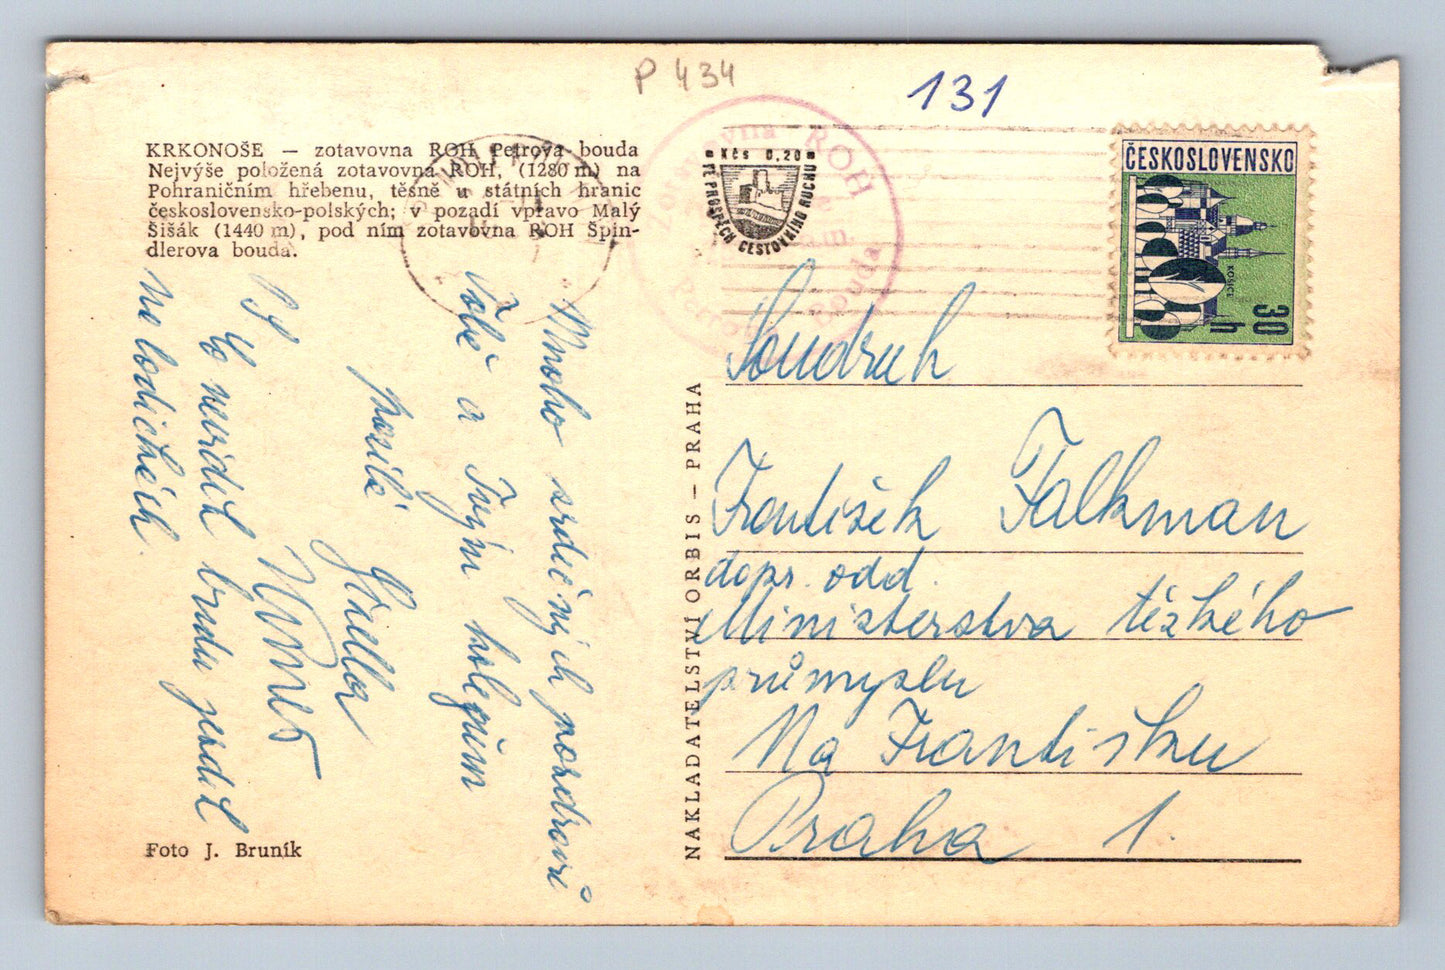 P 434
131
KRKONOŠE — zotavovna ROH Petrova bouda
Nejvýše položená zotavovna ROH, (1280 m) na
Pohraničním hřebenu, těsně u státních hranic
československo-polských; v pozadí vpravo Malý
Šišák (1440 m), pod ním zotavovna ROH Špin-
dlerova bouda.
Zotavovna ROH
Petrova bouda
Kčs 0,20
VE PROSPĚCH CESTOVNÍHO RUCHU
ČESKOSLOVENSKO
KOŠICE
30 h
Mnoho srdečných pozdravů
Tobě a Tvým kolegům
posílá
To neviděl
na lodičkách.
Soudruh
František Falkman
dopr. odd.
Ministerstva těžkého
průmyslu
Na Františku
Praha 1.
NAKLADATELSTVÍ ORBIS – PRAHA
Foto J. Bruník